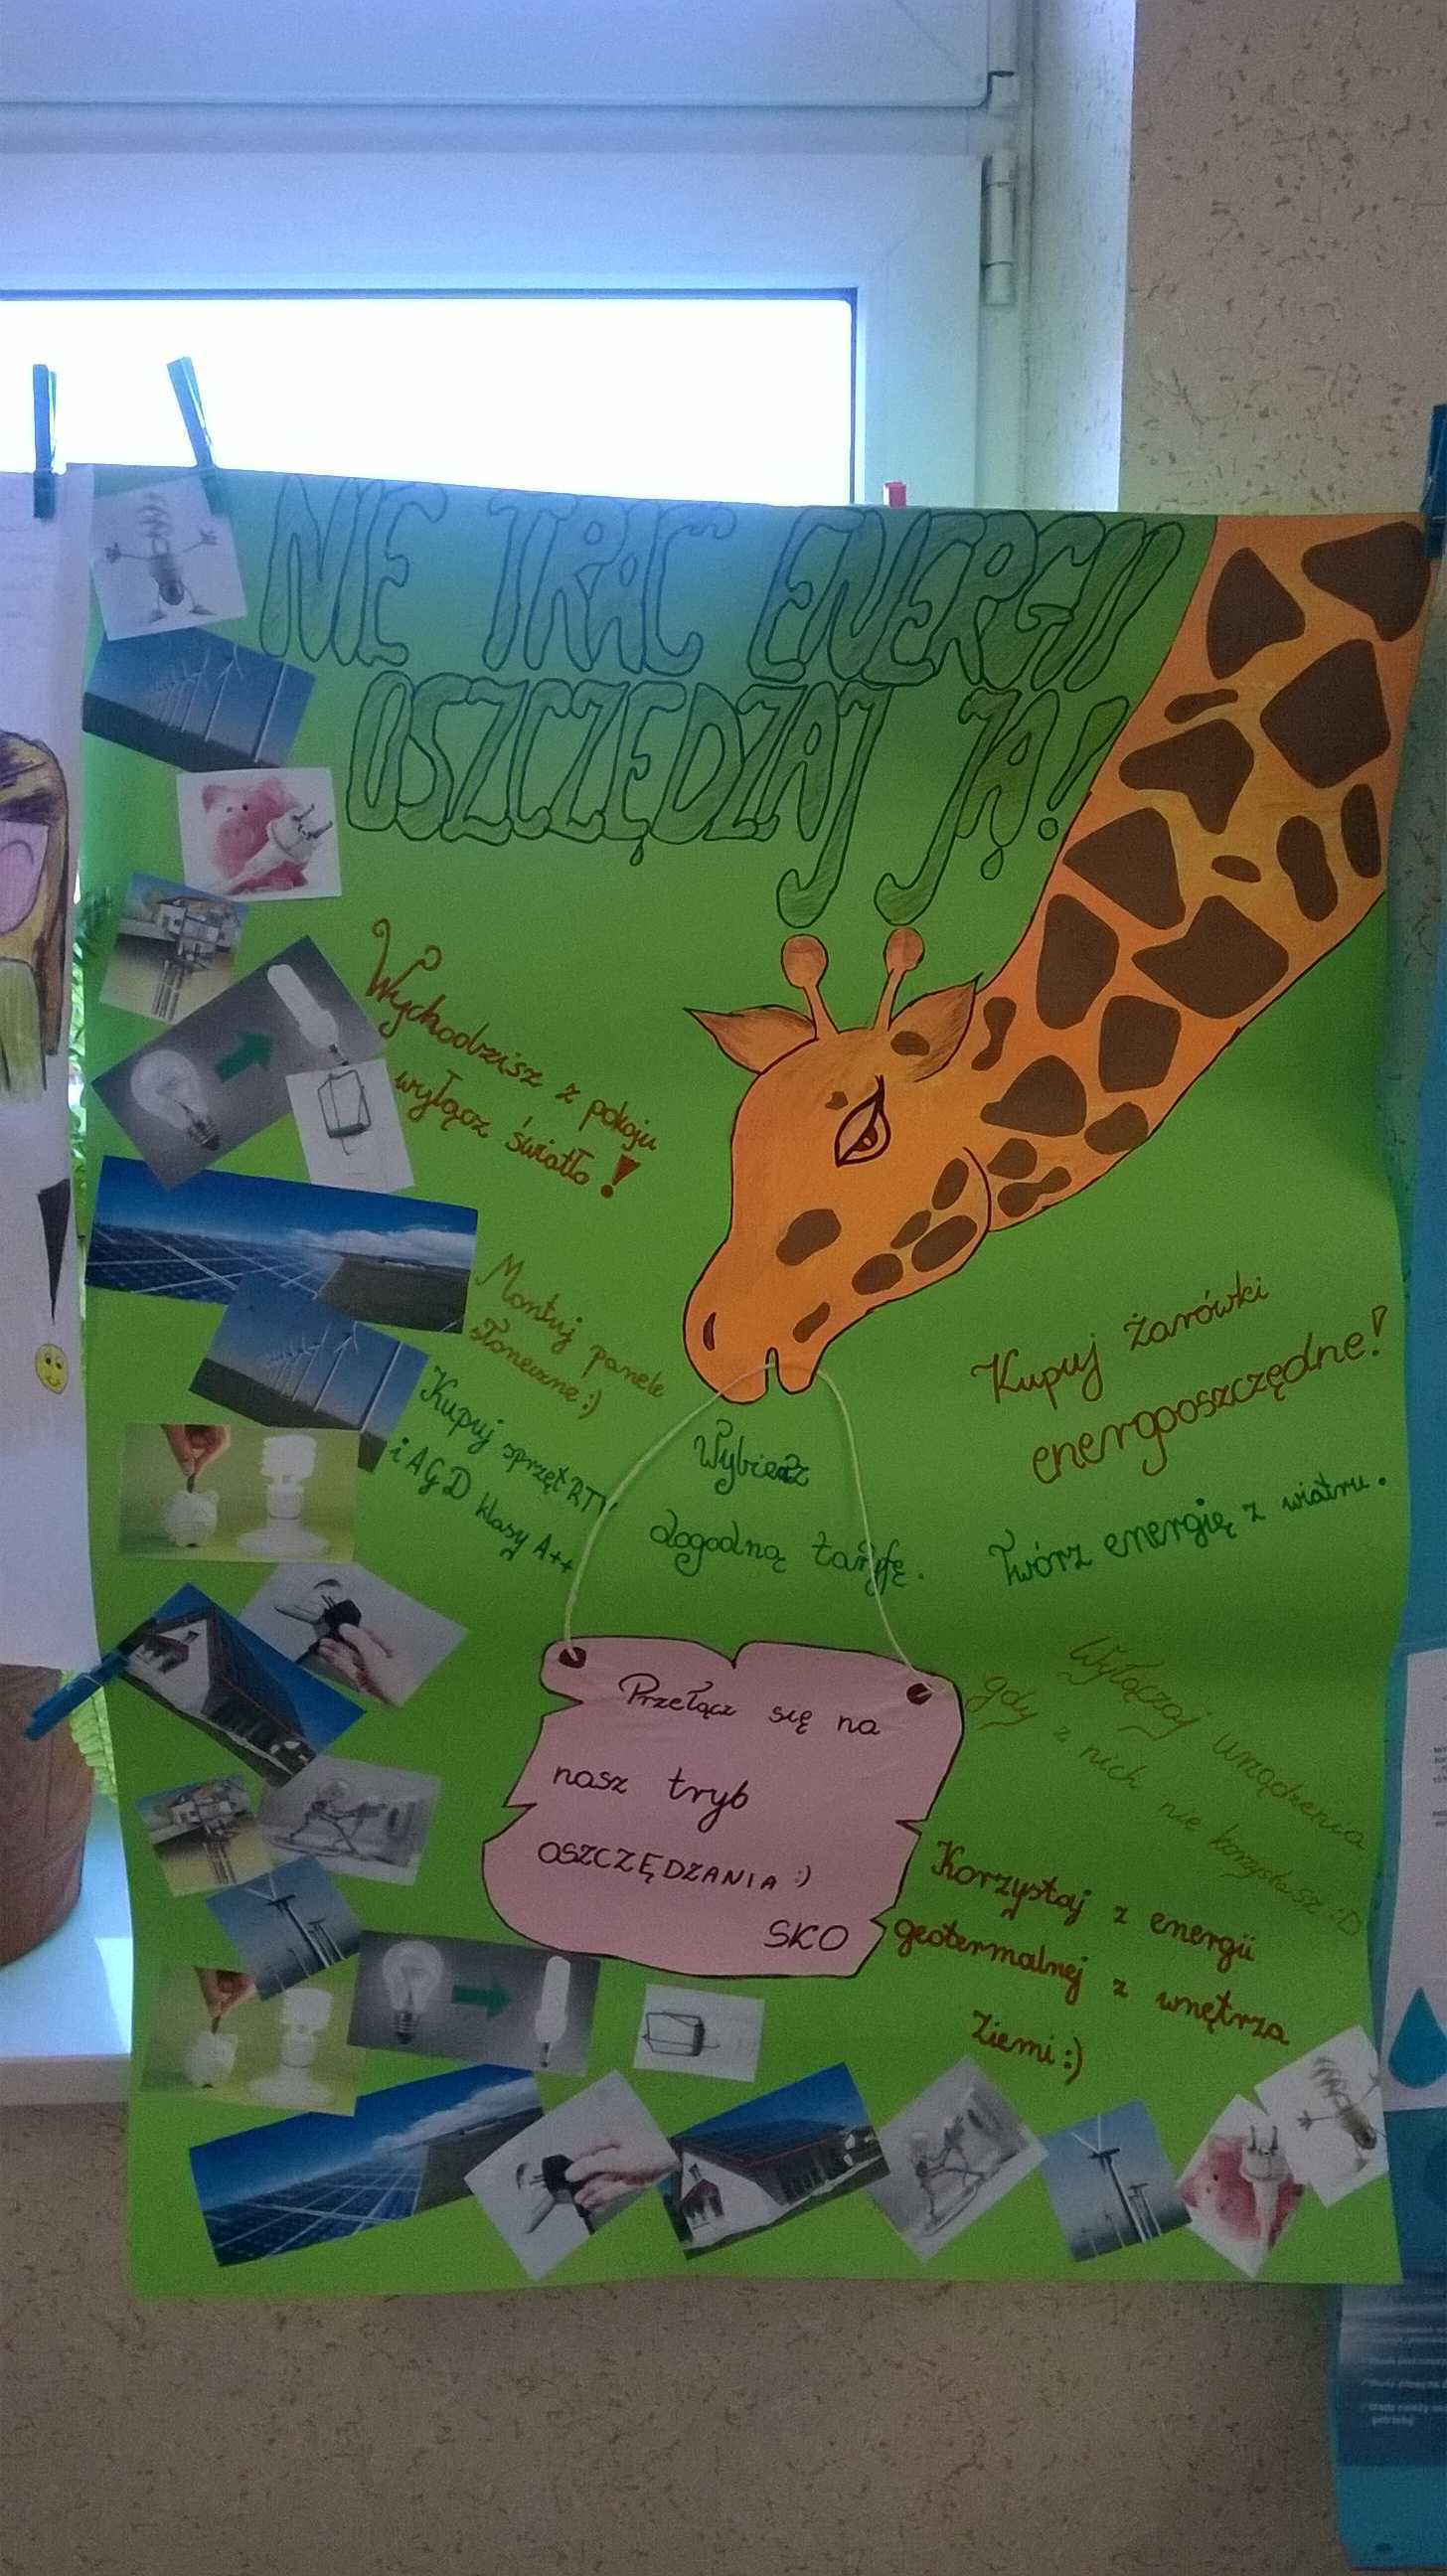 NIE TRAĆ ENERGII
OSZCZĘDZAJ JĄ!
Wychodzisz z pokoju
wyłącz światło!
Montuj panele
słoneczne:)
Kupuj sprzęt RTV
i AGD klasy A++
Wybierz
dogodną taryfę.
Kupuj żarówki
energooszczędne!
Twórz energię z wiatru.
Wyłączaj urządzenia
gdy z nich nie korzystasz :D
Korzystaj z energii
geotermalnej z wnętrza
Ziemi:)
Przełącz się na
nasz tryb
OSZCZĘDZANIA :)
SKO